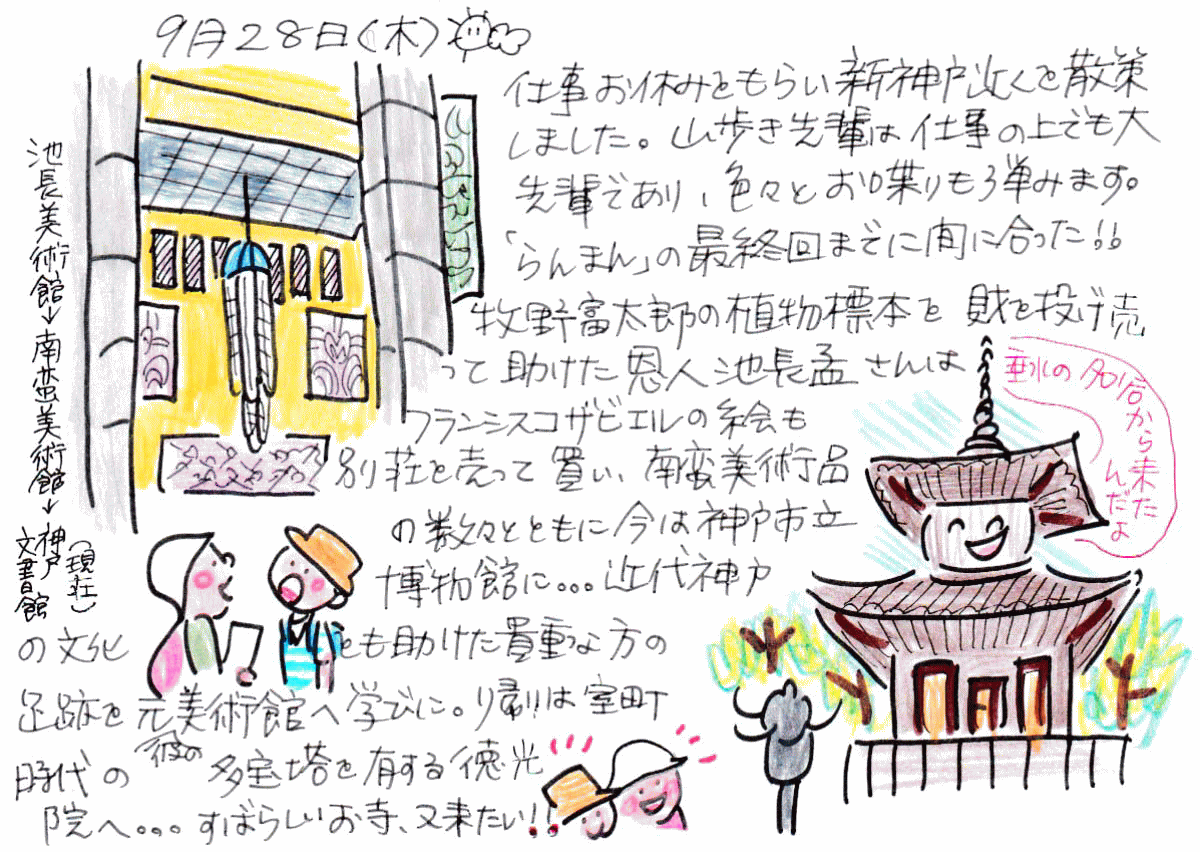 9月28日(木)
仕事お休みをもらい新神戸近くを散策
しました。山歩き先輩は仕事の上でも大
先輩であり、色々とお喋りも弾みます。
「らんまん」の最終回までに間に合った!!
牧野富太郎の植物標本を財を投げ売
って助けた恩人池長孟さんは
フランシスコザビエルの絵も
別荘を売って買い、南蛮美術品
の数々とともに今は神戸市立
博物館に...近代神戸
の文化をも助けた貴重な方の
足跡を元美術館へ学びに。帰りは室町
時代の 多宝塔を有する徳光
院へ...すばらしいお寺、又来たい!!
彼の
池長美術館→南蛮美術館→神戸文書館
(現在)
垂水の名刹から来た
んだよ